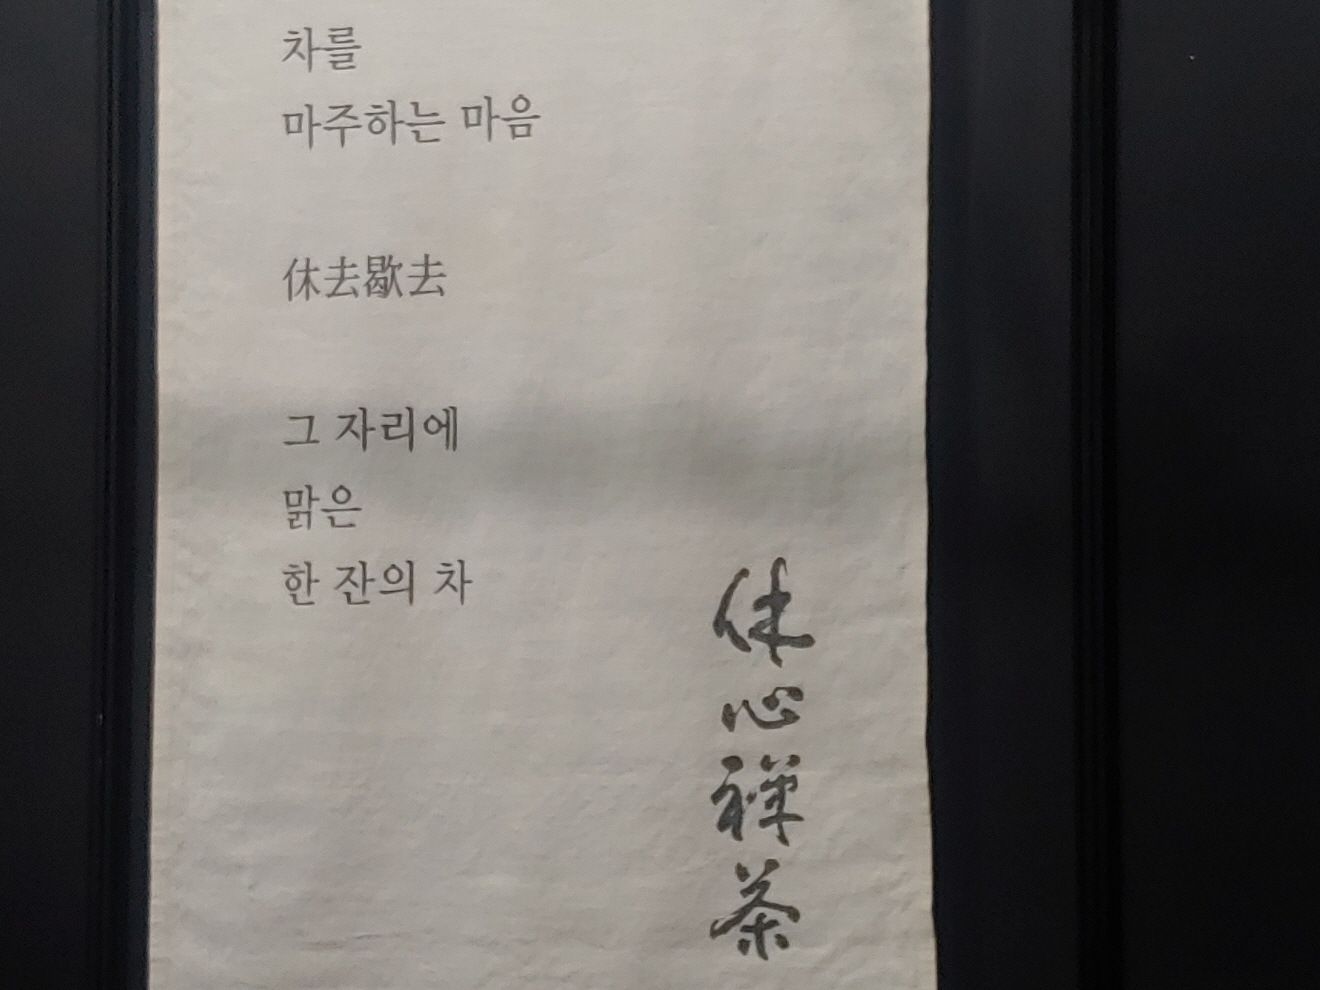 차를
마주하는 마음
休去歇去
그 자리에
맑은
한 잔의 차
休心禅茶